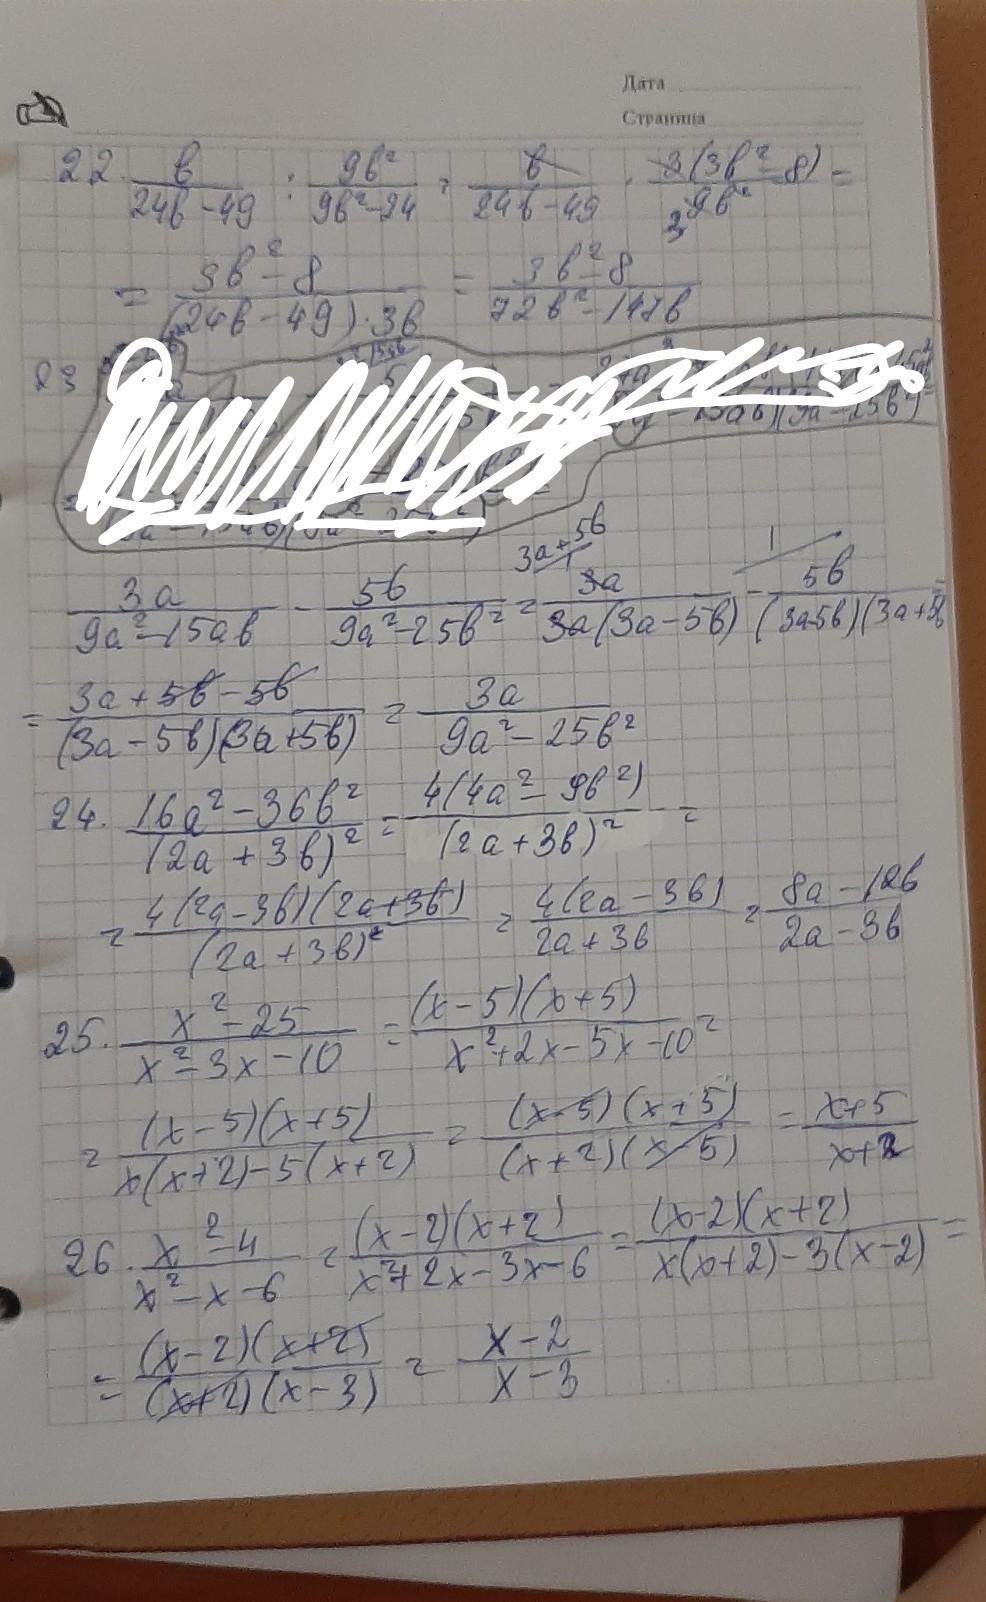 Дата
Страница
22. в/(24в-49) : 9в²/(9в²-24) = в/(24в-49) · 3(3в²-8)/9в² =
3
= (3в²-8)/((24в-49)·3в) = (3в²-8)/(72в²-147в)
23
3a+5в 1
3a/(9a²-15aв) - 5в/(9a²-25в²) = 3a/(3a(3a-5в)) - 5в/((3a-5в)(3a+5в)) =
= (3a+5в-5в)/((3a-5в)(3a+5в)) = 3a/(9a²-25в²)
24. (16a²-36в²)/(2a+3в)² = 4(4a²-9в²)/(2a+3в)² =
= 4(2a-3в)(2a+3в)/(2a+3в)² = 4(2a-3в)/(2a+3в) = (8a-12в)/(2a-3в)
25. (x²-25)/(x²-3x-10) = (x-5)(x+5)/(x²+2x-5x-10) =
= (x-5)(x+5)/(x(x+2)-5(x+2)) = (x-5)(x+5)/((x+2)(x-5)) = (x+5)/(x+2)
26. (x²-4)/(x²-x-6) = (x-2)(x+2)/(x²+2x-3x-6) = (x-2)(x+2)/(x(x+2)-3(x-2)) =
= (x-2)(x+2)/((x+2)(x-3)) = (x-2)/(x-3)